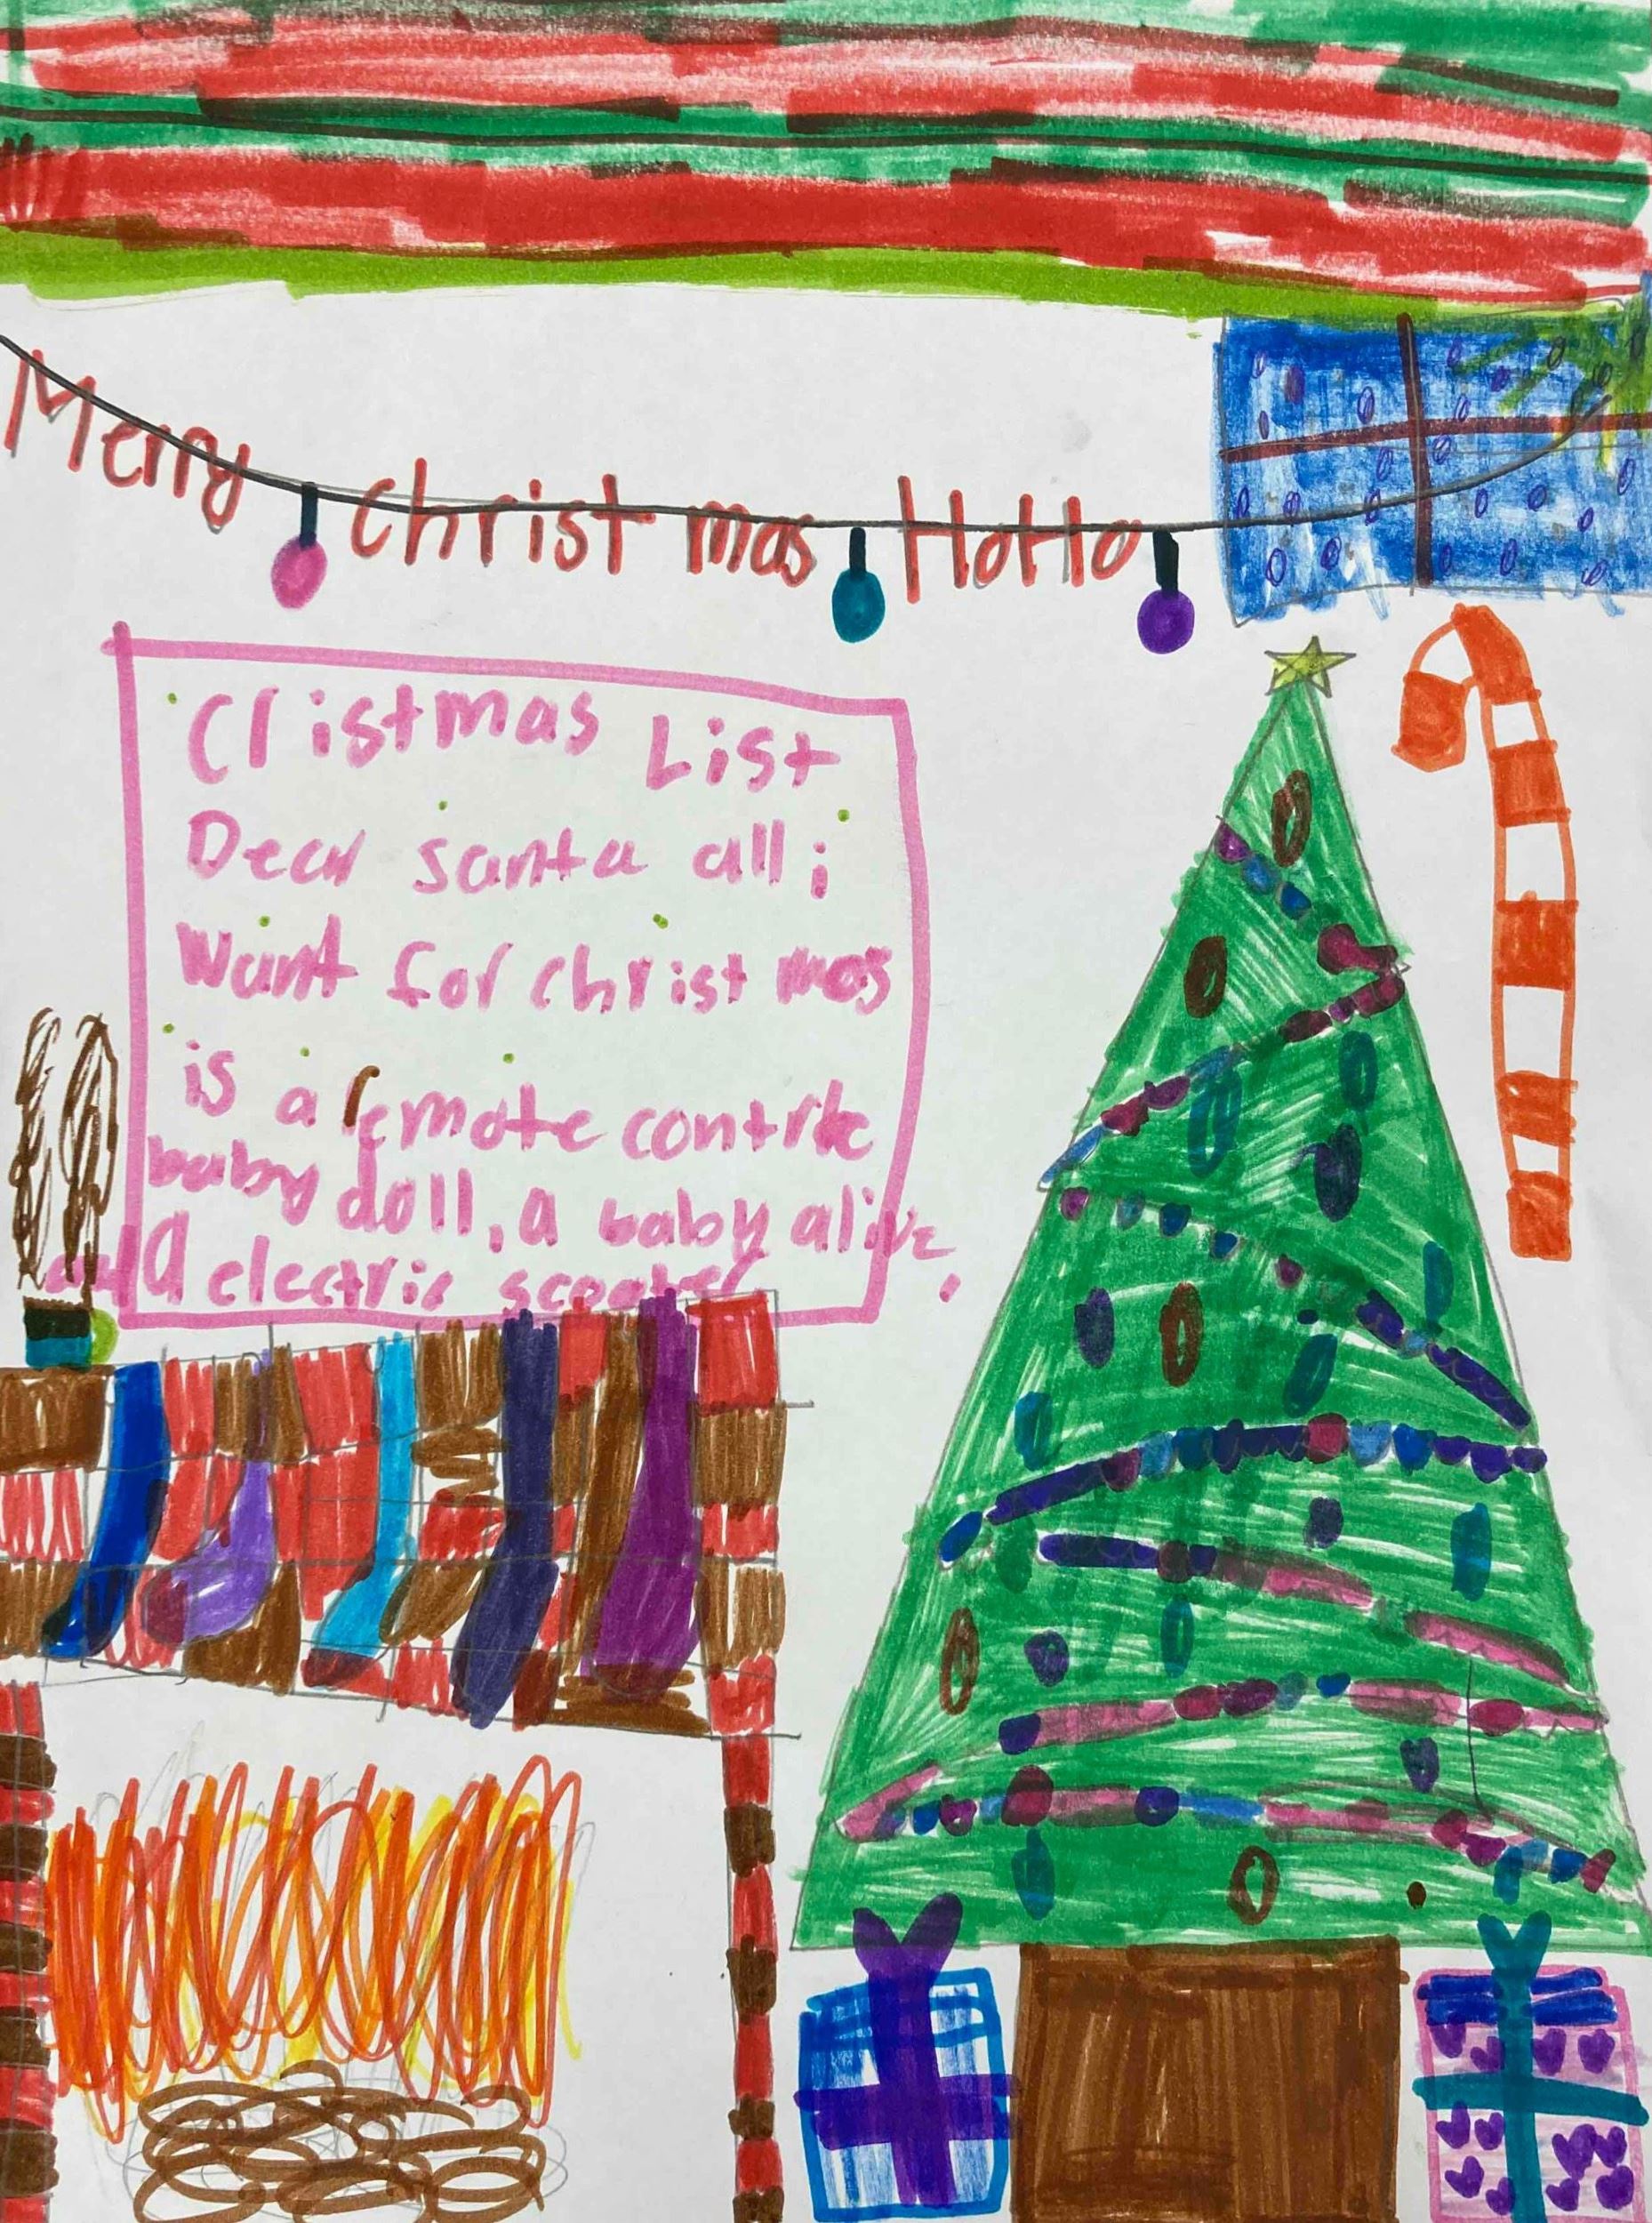 Merry christ mas HoHo
Cristmas List
Dear santa all i
want for christ mas
is a remote contrle
baby doll, a baby alive,
and a electric scooter.